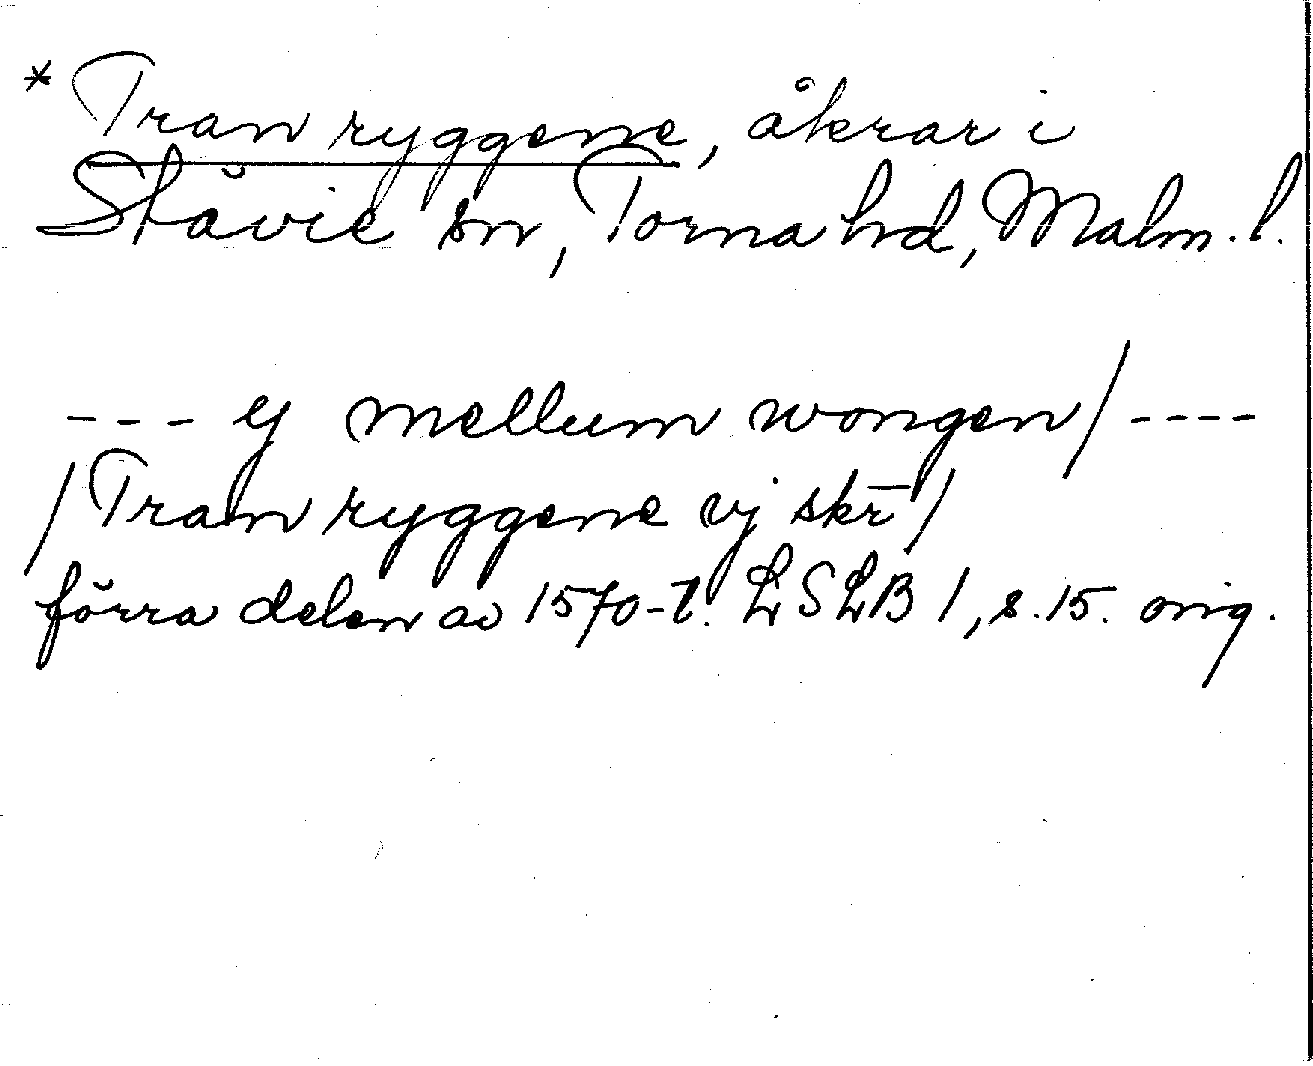 * Tran ryggene, åkrar i
Stävie sn, Torna hd, Malm. l.
--- ej mellum wongen/----
/Tran ryggene vj skr̄/
förra delen av 1570-t. LSLB 1, s. 15. orig.